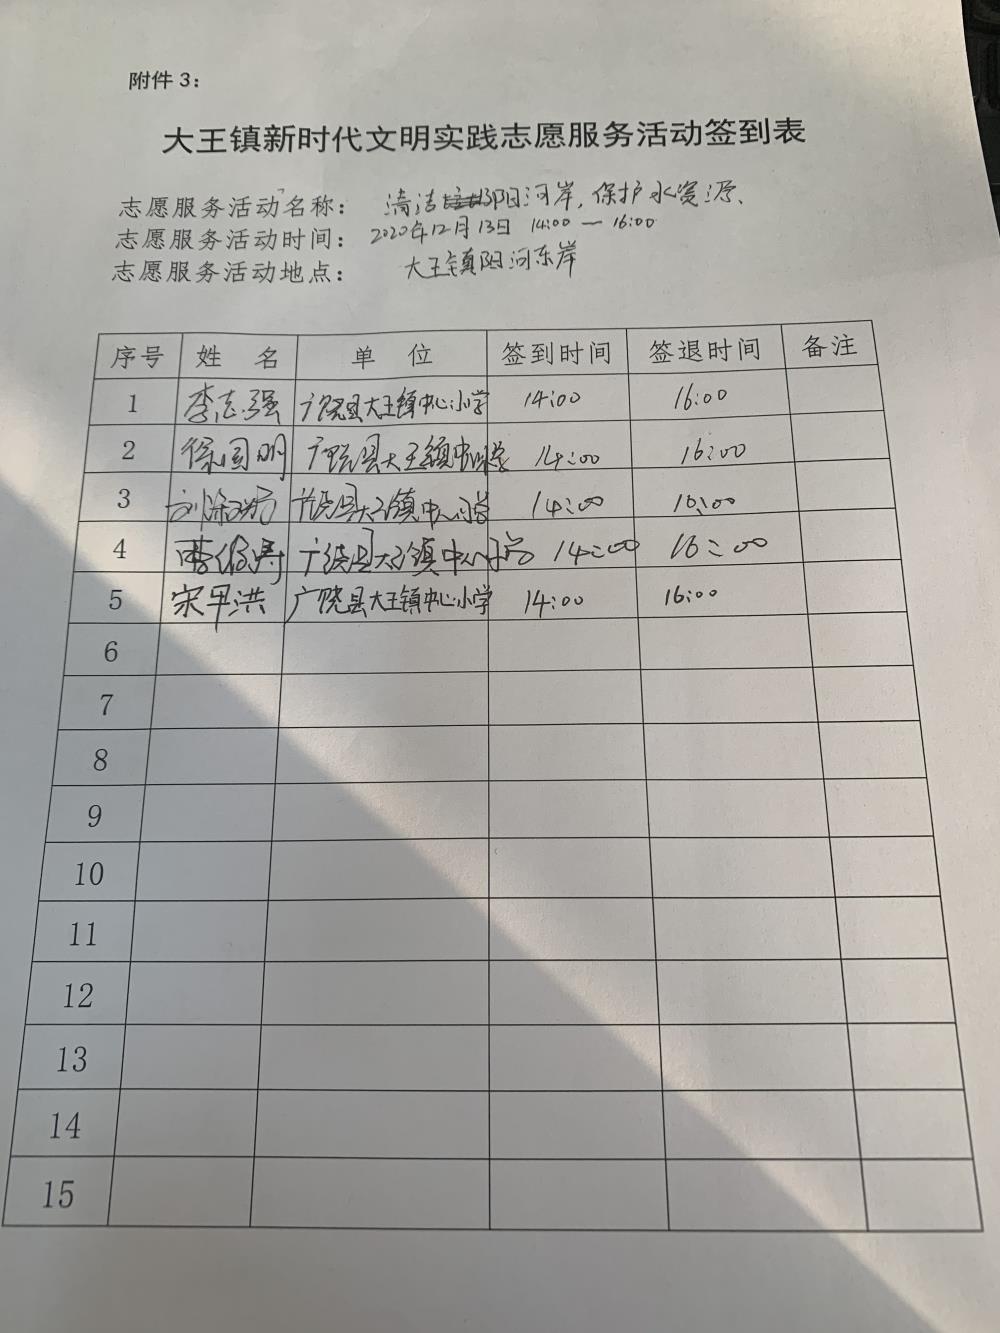 附件 3：
大王镇新时代文明实践志愿服务活动签到表
志愿服务活动名称： 清洁阳河岸，保护水资源、
志愿服务活动时间： 2020年12月13日 14:00 — 16:00
志愿服务活动地点： 大王镇阳河东岸
序号 姓 名 单 位 签到时间 签退时间 备注
1 李志强 广饶县大王镇中心小学 14:00 16:00
2 徐国明 广饶县大王镇中心小学 14:00 16:00
3 广饶县大王镇中心小学 14:00 16:00
4 广饶县大王镇中心小学 14:00 16:00
5 宋甲洪 广饶县大王镇中心小学 14:00 16:00
6
7
8
9
10
11
12
13
14
15